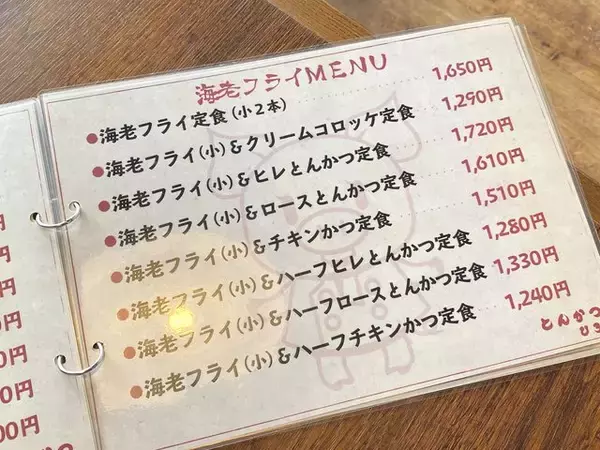 海老フライMENU
●海老フライ定食(小2本) 1,650円
●海老フライ(小)&クリームコロッケ定食 1,290円
●海老フライ(小)&ヒレとんかつ定食 1,720円
●海老フライ(小)&ロースとんかつ定食 1,610円
●海老フライ(小)&チキンかつ定食 1,510円
●海老フライ(小)&ハーフヒレとんかつ定食 1,280円
●海老フライ(小)&ハーフロースとんかつ定食 1,330円
●海老フライ(小)&ハーフチキンかつ定食 1,240円
とんかつ
円
円
円
円
円
0円
00円